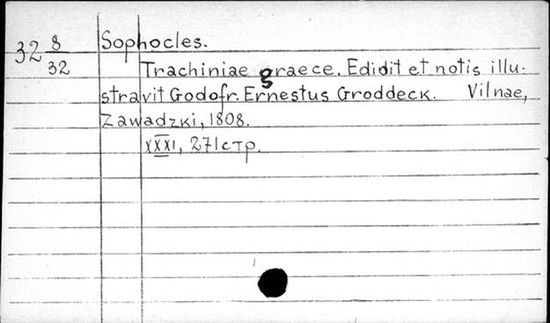 32 8/32 Sophocles.
Trachiniae graece. Edidit et notis illu-
stravit Godofr. Ernestus Groddeck. Vilnae,
Zawadzki, 1808.
XXXI, 271 стр.